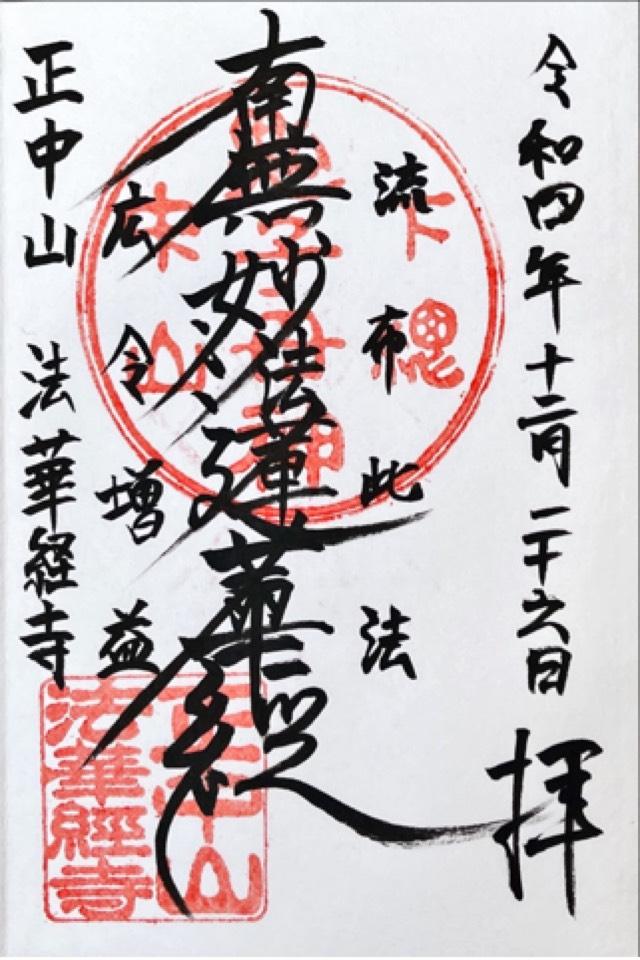 令和四年十二月二十六日
拝
流布此法
南無妙法蓮華經
広令増益
正中山　法華経寺
正中山
法華經寺